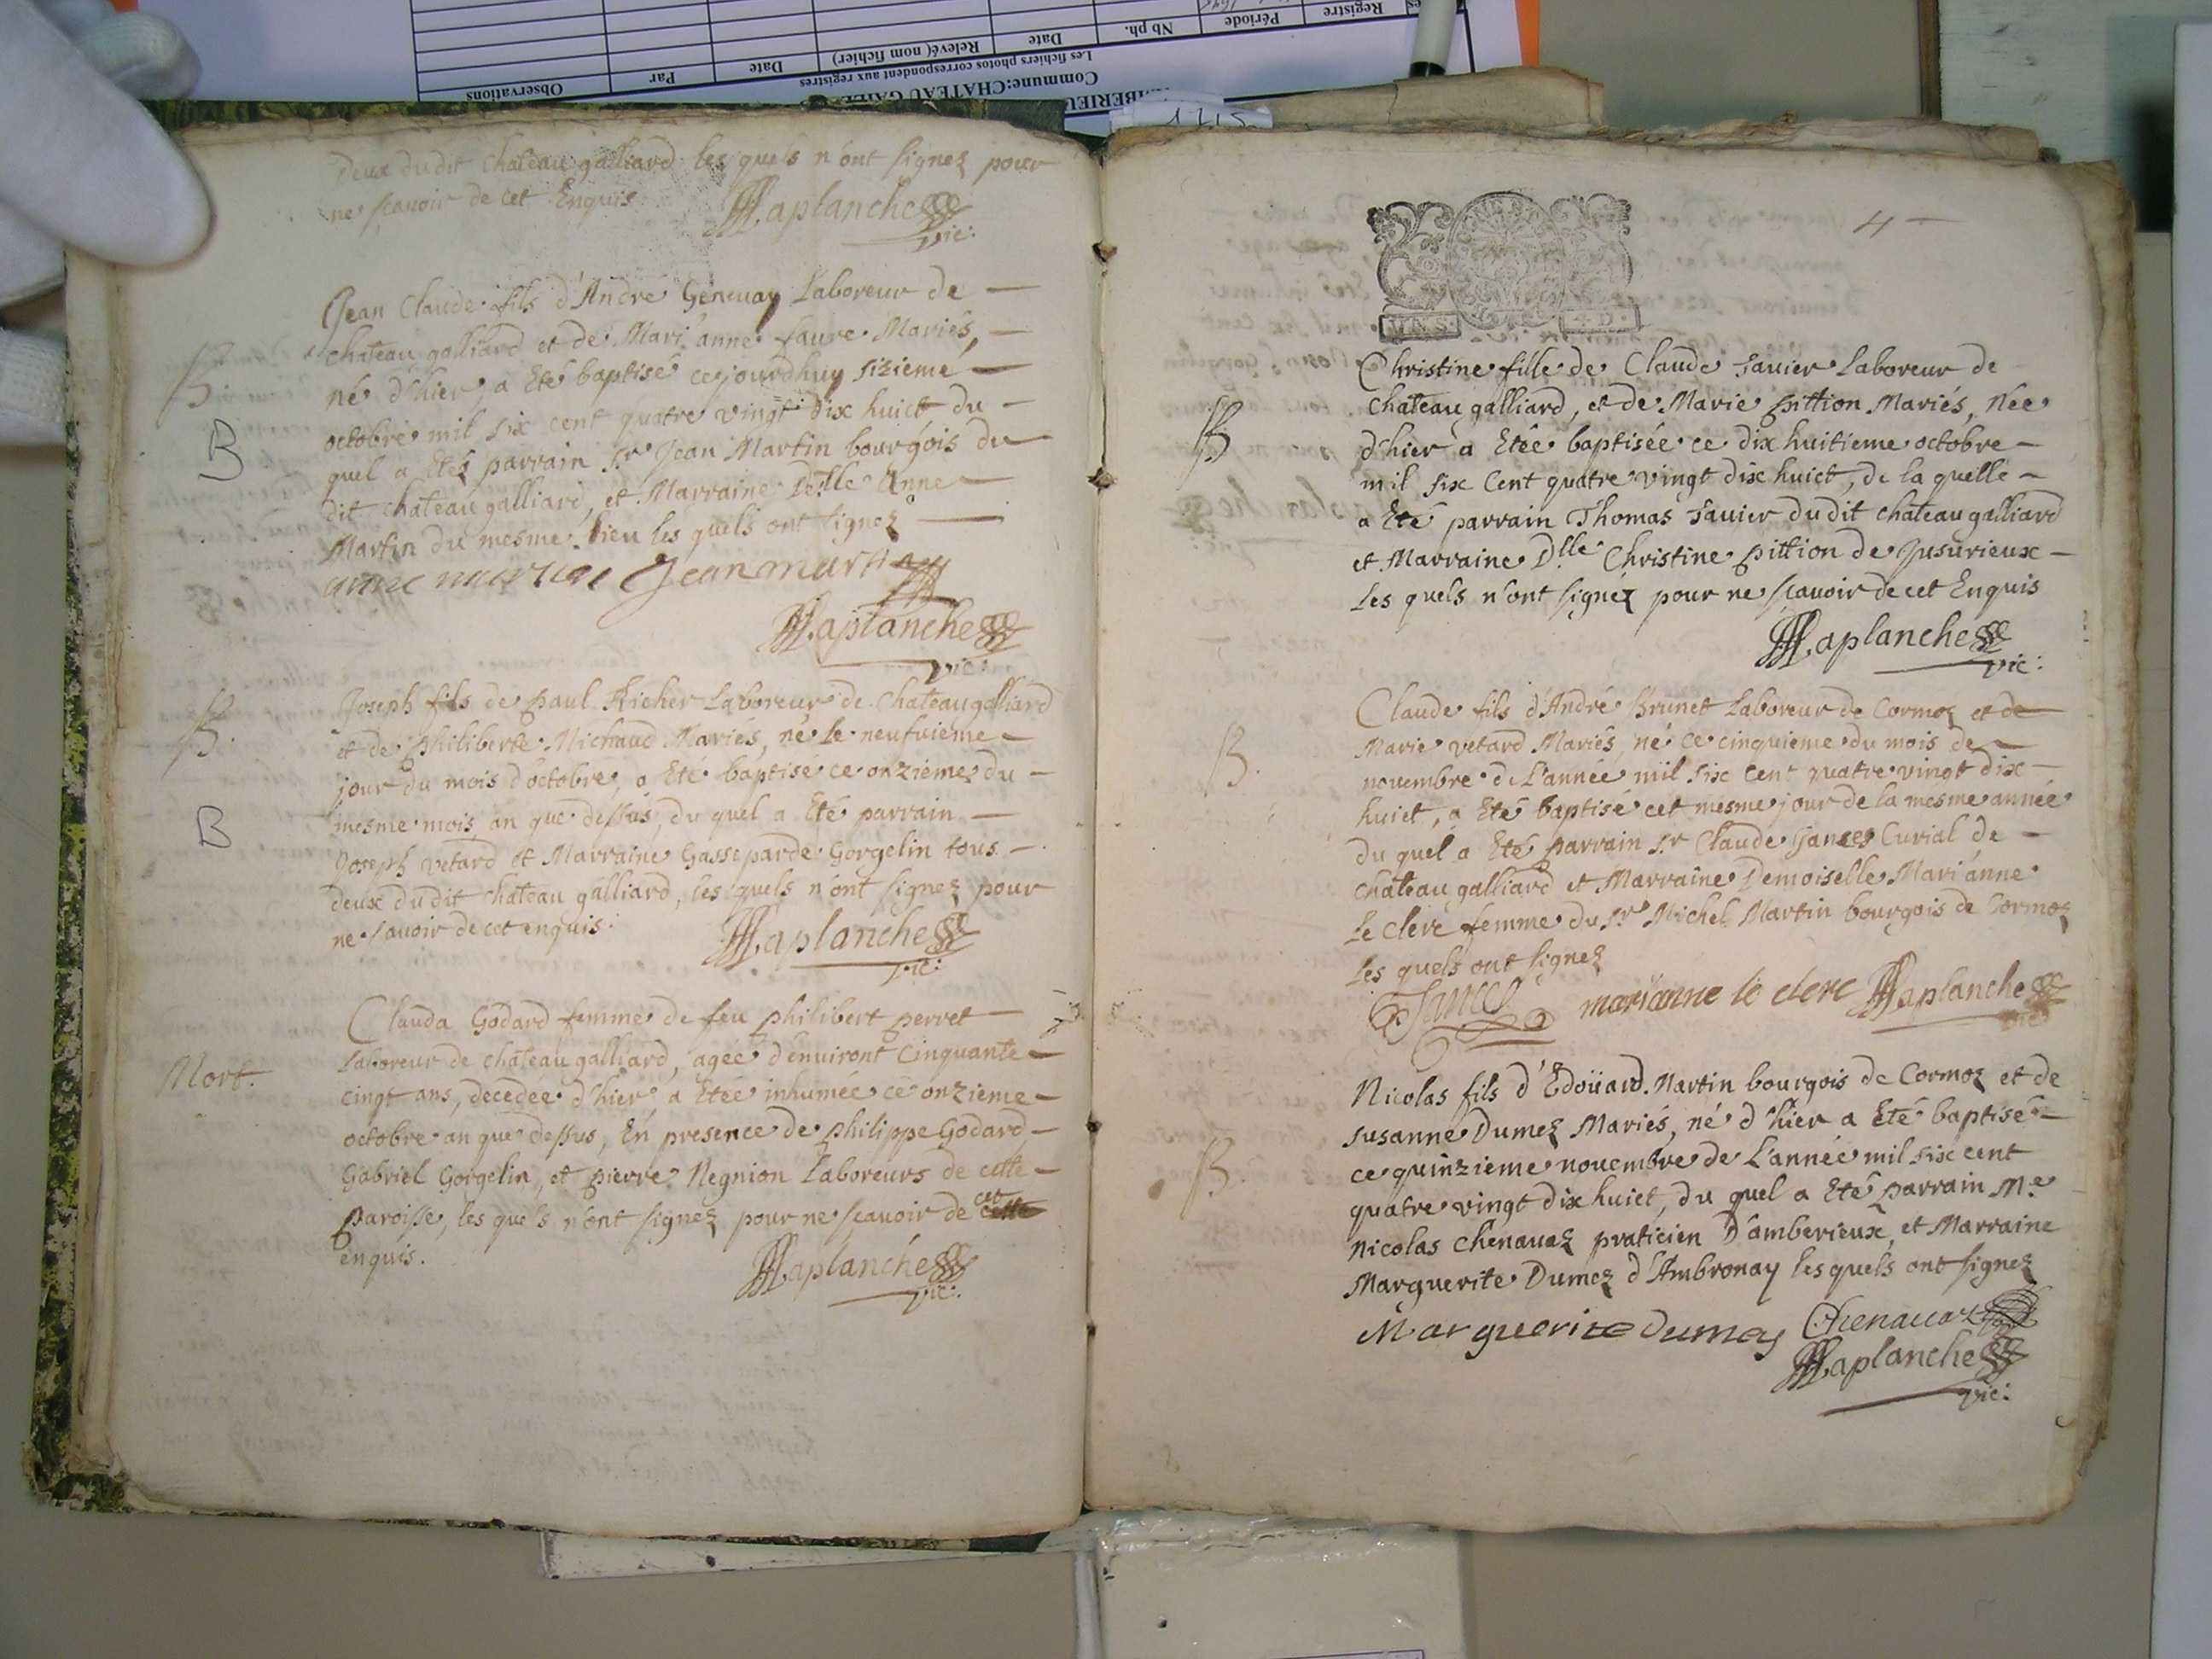 Observations
Par
Date
Relevé( nom fichier)
Date
Nb ph.
Période
Registre
Les fichiers photos correspondent aux registres
Commune:CHATEAU GAILL
MBERIEU
Deux du dit chateau galliard les quels n'ont signez pour
ne scavoir de cet Enquis Laplanche
vic:
Jean Claude fils d'André Genevay Laboreur de
chateau galliard et de Mari'anne faure Mariés,
B. né d'hier, a Eté baptisé cejourdhuy sizieme
octobre mil six cent quatre vingt dix huict du
B quel a Etez parrain Sr Jean Martin bourgois du
dit chateau galliard, et Marraine Delle Anne
Martin du mesme lieu les quels ont signez
anne martin Jean martin
Laplanche
vic:
Joseph fils de paul Richer Laboreur de chateau galliard
B. et de philiberte Michaud Mariés, né le neufvieme
jour du mois d'octobre, a Eté baptisé ce onziemez du
B mesme mois, an que dessus, du quel a Eté parrain
Joseph vetard et Marraine Gasseparde Gorgelin tous
deux du dit chateau galliard, les quels n'ont signez pour
ne scavoir de cet enquis. Laplanche
vic:
Clauda Godard femme de feu philibert perret
Mort. Laboreur de chateau galliard, agée d'environt cinquante
cingt ans, decedée d'hier a Etée inhumée ce onzieme
octobre an que dessus, En presence de philippe Godard
Gabriel Gorgelin, et pierre Regnion Laboreurs de cette
paroisse, les quels n'ont signez pour ne scavoir de cette cet
enquis. Laplanche
vic:
4
Christine fille de Claude favier Laboreur de
chateau galliard, et de Marie pittion Mariés, Née
B d'hier a Etée baptisée ce dix huitieme octobre
mil six Cent quatre vingt dix huict, de la quelle
a Eté parrain Thomas favier du dit chateau galliard
et Marraine Dlle Christine pittion de Jusurieux
Les quels n'ont signéz pour ne scavoir de cet Enquis
Laplanche
vic:
Claude fils d'André Brunet Laboreur de Cormoz et de
B. Marie vetard Mariés, né ce cinquieme du mois de
novembre de L'année mil six Cent quatre vingt dix
huict, a Eté baptisé cet mesme jour de la mesme année
du quel a Eté parrain Sr Claude Jances Curial de
chateau galliard et Marraine Demoiselle Mari'anne
Le clerc femme du Sr Michel Martin bourgois de Cormoz
Les quels ont signez
Jances marianne le clerc Laplanche
vic
Nicolas fils d'Edoüard Martin bourgois de Cormoz et de
susanne Dumez Mariés, né d'hier a Eté baptisé
B. ce quinzieme novembre de L'année mil six cent
quatre vingt dix huict, du quel a Eté parrain Me
Nicolas chenavaz praticien D'amberieux, et Marraine
Marguerite Dumez d'Ambronay les quels ont signez
Marguerite Dumez Chenavaz
Laplanche
vic: